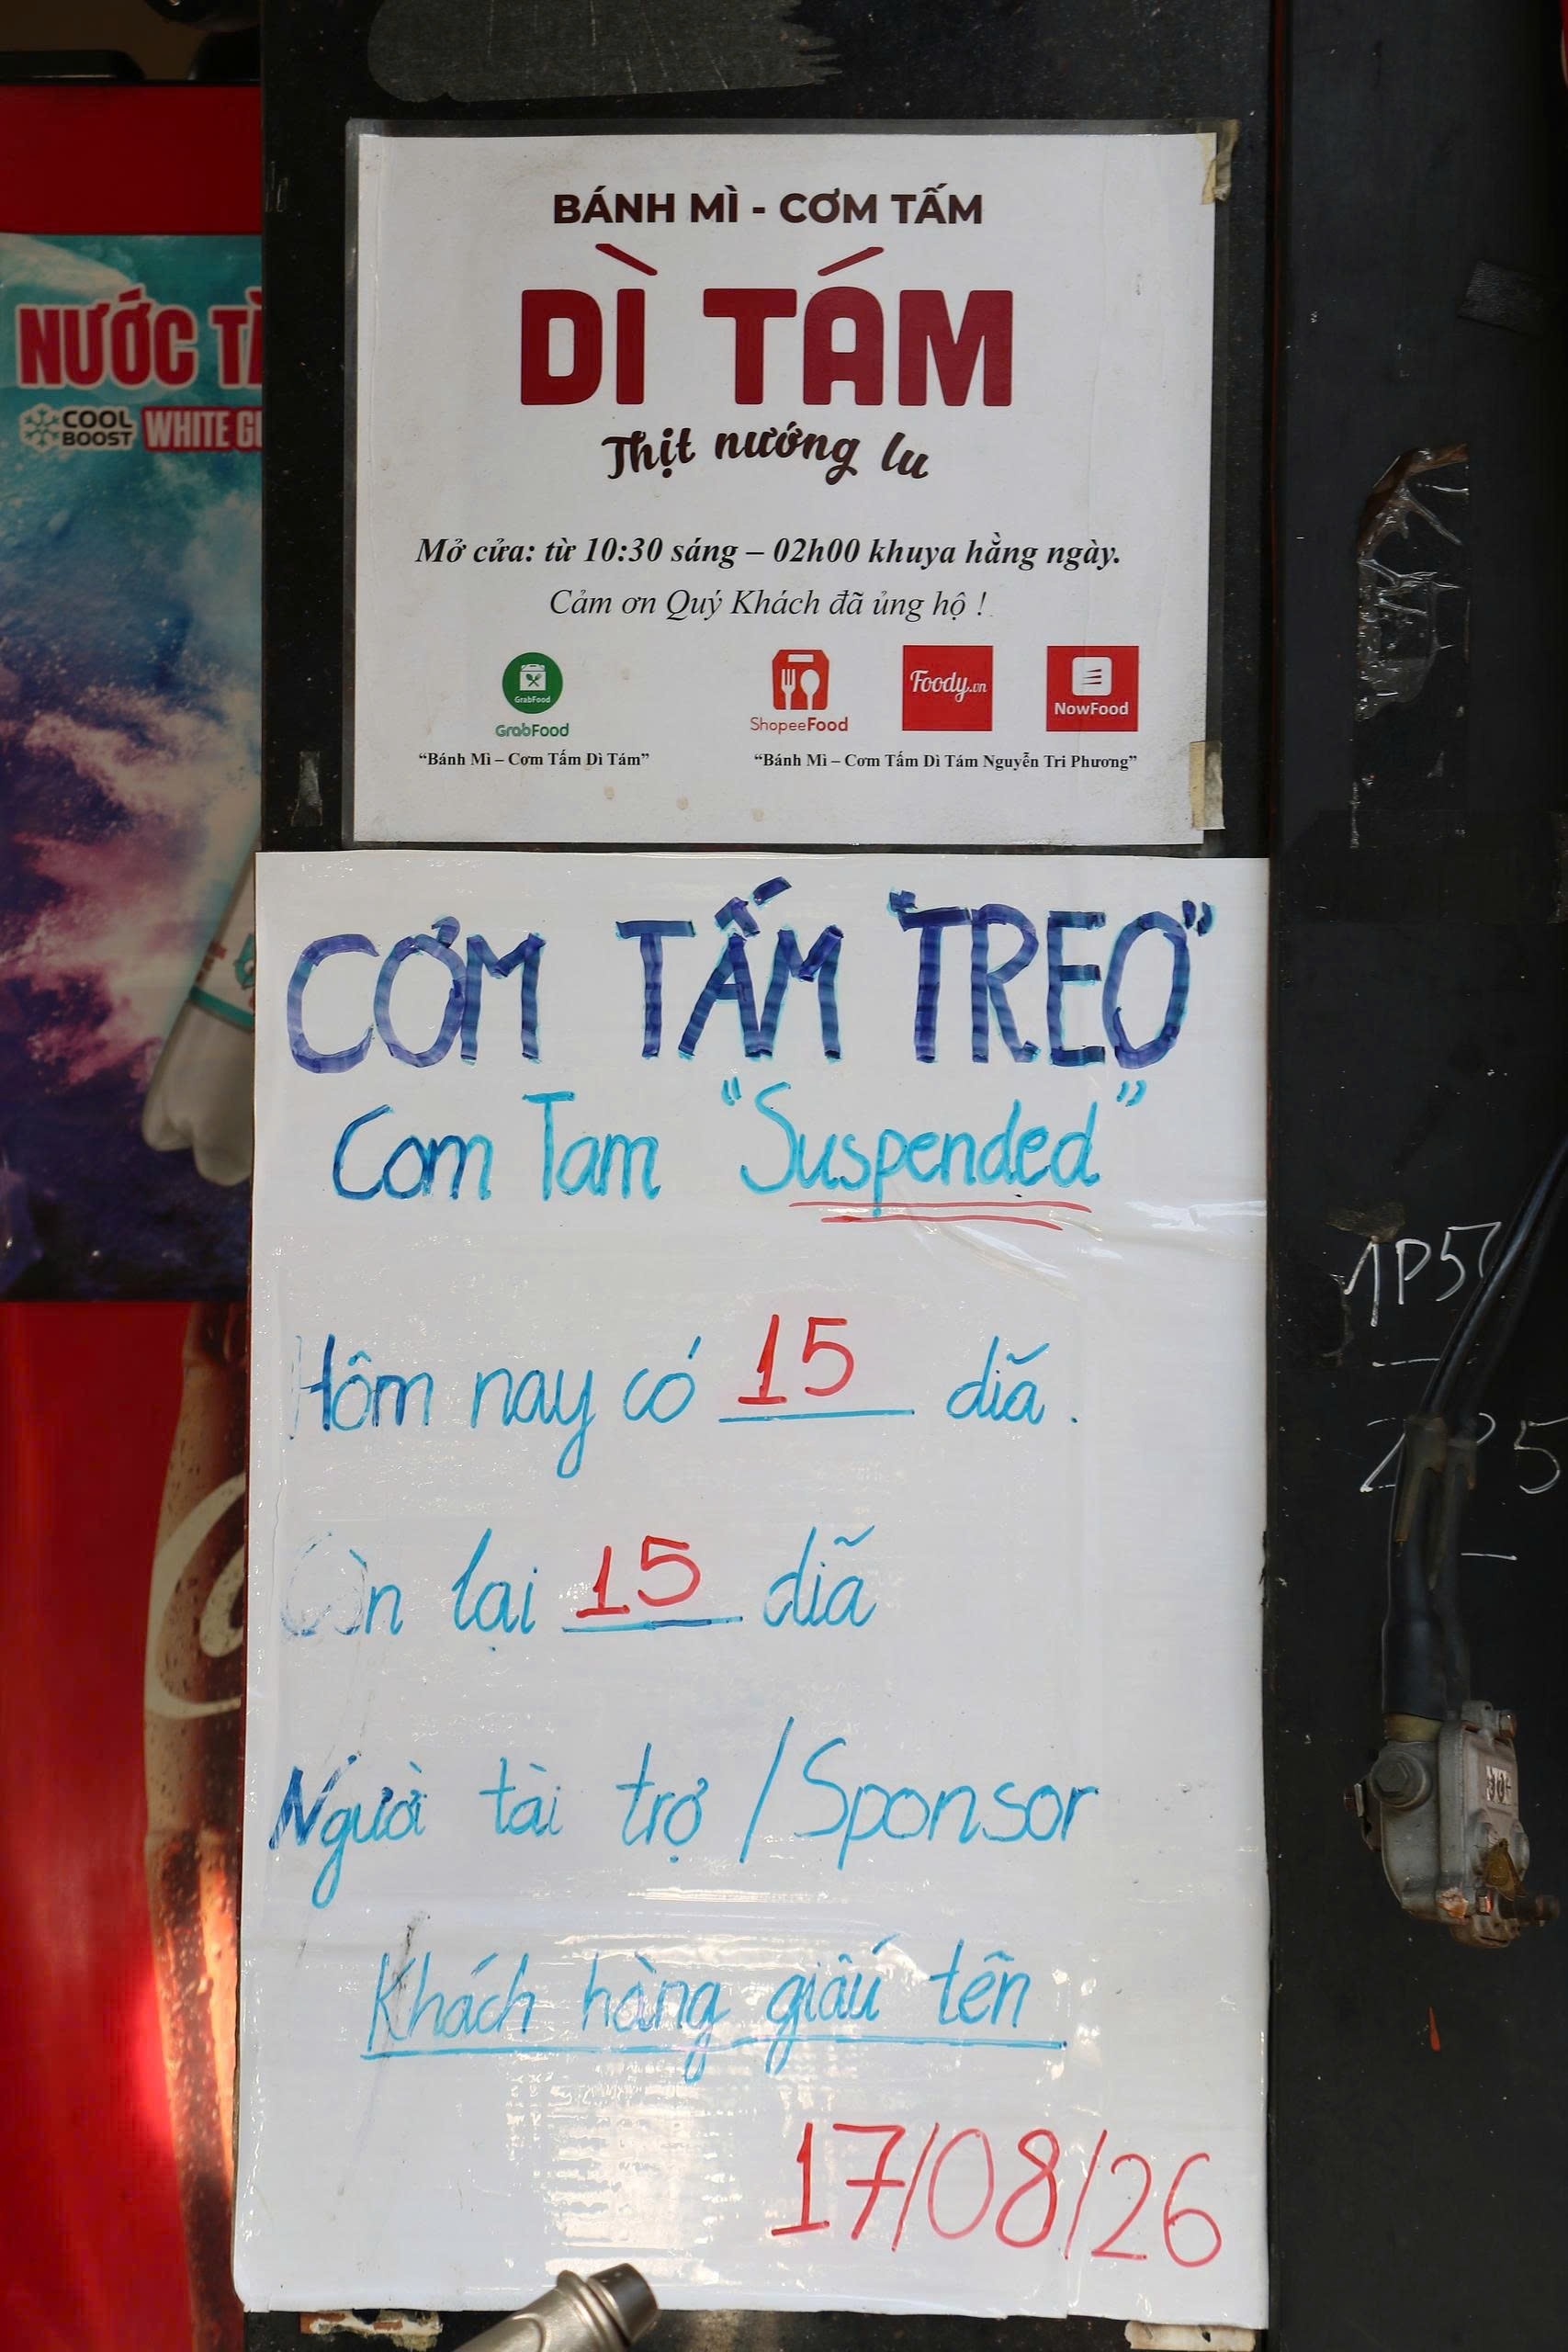 BÁNH MÌ - CƠM TẤM
DÌ TÁM
Thịt nướng lu
Mở cửa: từ 10:30 sáng – 02h00 khuya hằng ngày.
Cảm ơn Quý Khách đã ủng hộ !
GrabFood
GrabFood
ShopeeFood
Foody.vn
NowFood
“Bánh Mì – Cơm Tấm Dì Tám”
“Bánh Mì – Cơm Tấm Dì Tám Nguyễn Tri Phương”
NƯỚC
COOL BOOST WHITE
CƠM TẤM "TREO"
Com Tam "Suspended"
Hôm nay có 15 dĩa.
Còn lại 15 dĩa
Người tài trợ / Sponsor
Khách hàng giấu tên
17/08/26